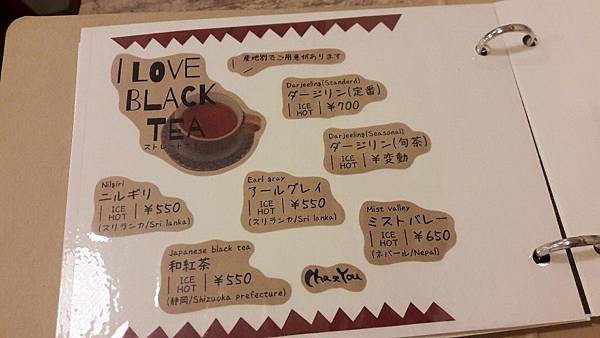 I LOVE
BLACK
TEA
ストレート
産地別でご用意があります
Darjeeling(Standerd)
ダージリン(定番)
ICE
HOT
¥700
Darjeeling(Seasonal)
ダージリン(旬茶)
ICE
HOT
¥変動
Nilgiri
ニルギリ
ICE
HOT
¥550
(スリランカ/Sri lanka)
Earl gray
アールグレイ
ICE
HOT
¥550
(スリランカ/Sri lanka)
Mist valley
ミストバレー
ICE
HOT
¥650
(ネパール/Nepal)
Japanese black tea
和紅茶
ICE
HOT
¥550
(静岡/Shizuoka prefecture)